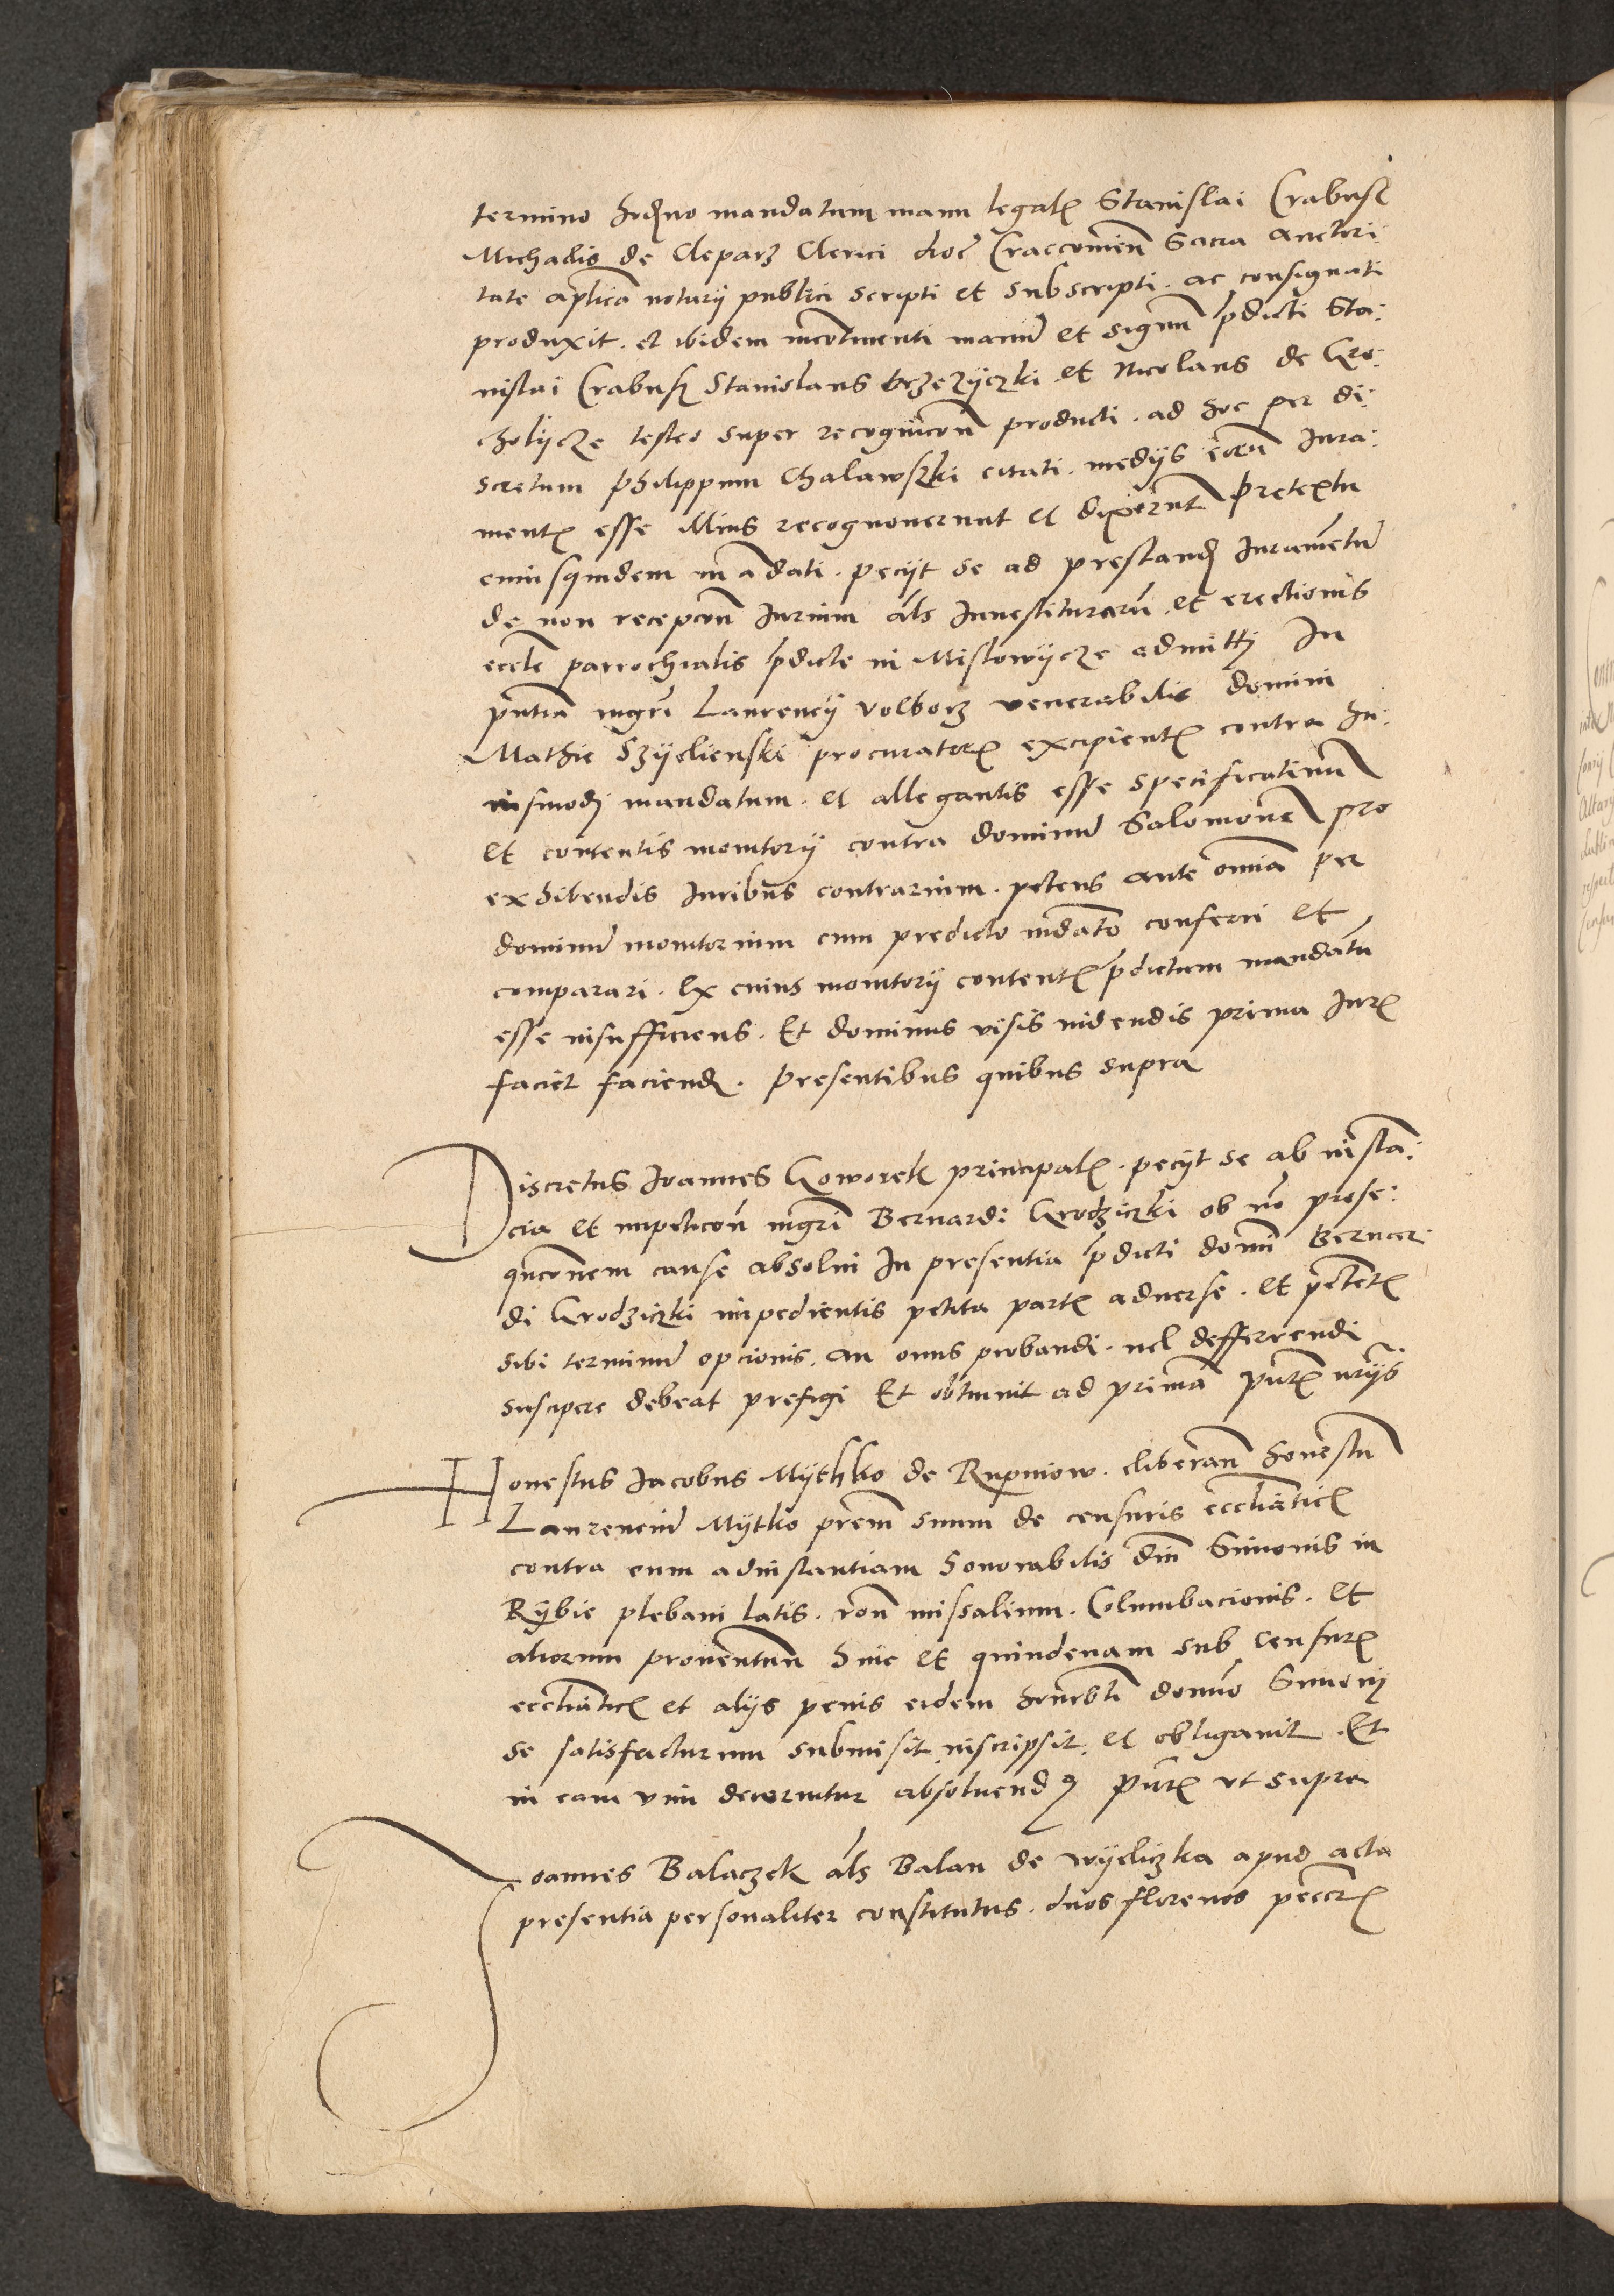 termino hodierno mandatum manu legalis Stanislai Crabusz
Michaelis de Cleparz Clerici dioc Craccouien Sacra Auctori:
tate aplica notarij publici scripti et subscripti ac consignati
produxit et ibidem incontinenti manu et signu pdicti Sta:
nislai Crabusz Stanislaus Brzezyczki et Nicolaus de Gro:
cholijcze testes super recognicon producti ad hoc per di:
scretum Philippum Chalawszki citati medijs eoru Jura:
mentis esse illius recognouerunt et dixerunt Pretextu
cuiusquidem madati pecijt se ad prestand Juramentu
de non recepcon Jurium als Inuestituraru et erectionis
eccle parrochialis pdicte in Mislowijcze admitti In
pntia mgri Laurencij Volborz venerabilis domini
Mathie Szijclienski procuratoris excipientis contra hu:
iusmodi mandatum et allegantis esse specificatinu
et contentis monitorij contra dominu Salomone pro
exhibendis Juribus contrarium petens ante omnia per
dominu monitorium cum predicto mdato conferri et
comparari Ex cuius monitorij contentis pdictum mandatu
esse insufficiens Et dominus visis videndis prima Juris
faciet faciend Presentibus quibus supra
Discretus Joannes Goworek principalis pecijt se ab insta:
cia et impeticon mgri Bernardi Grodziczki ob no prose:
quconem cause absolui In presentia pdicti domi Bernar
di Grodziczki impedientis petita partis aduerse et petetis
sibi terminu opcionis an onus probandi vel defferrendi
suscipere debeat prefigi Et obtinuit ad prima pntis vrijs
Honestus Jacobus Mythko de Rupniow liberan honestu
Laurenciu Mytko prem suum de censuris eccliaticis
contra eum adinstantiam honorabilis dni Simonis in
Rybie plebani latis ron missalium Columbacionis Et
aliorum prouentuu hinc et quindenam sub censuris
eccliaticis et alijs penis eidem honorbli domno Simonj
se satisfacturum submisit inscripsit et obligauit Et
in eam vim decernitur absoluend9 Pntis vt supra
Joannes Balaczek als Balan de wijeliczka apud acta
presentia personaliter constitutus duos florenos peccris